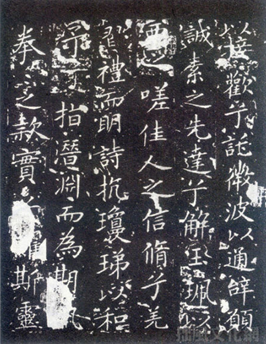 以接歡兮託微波以通辭願
誠素之先達兮解玉珮
之嗟佳人之信脩兮羌
習禮而明詩抗瓊珶以和
予兮指潛淵而為期
拳之款實懼斯靈